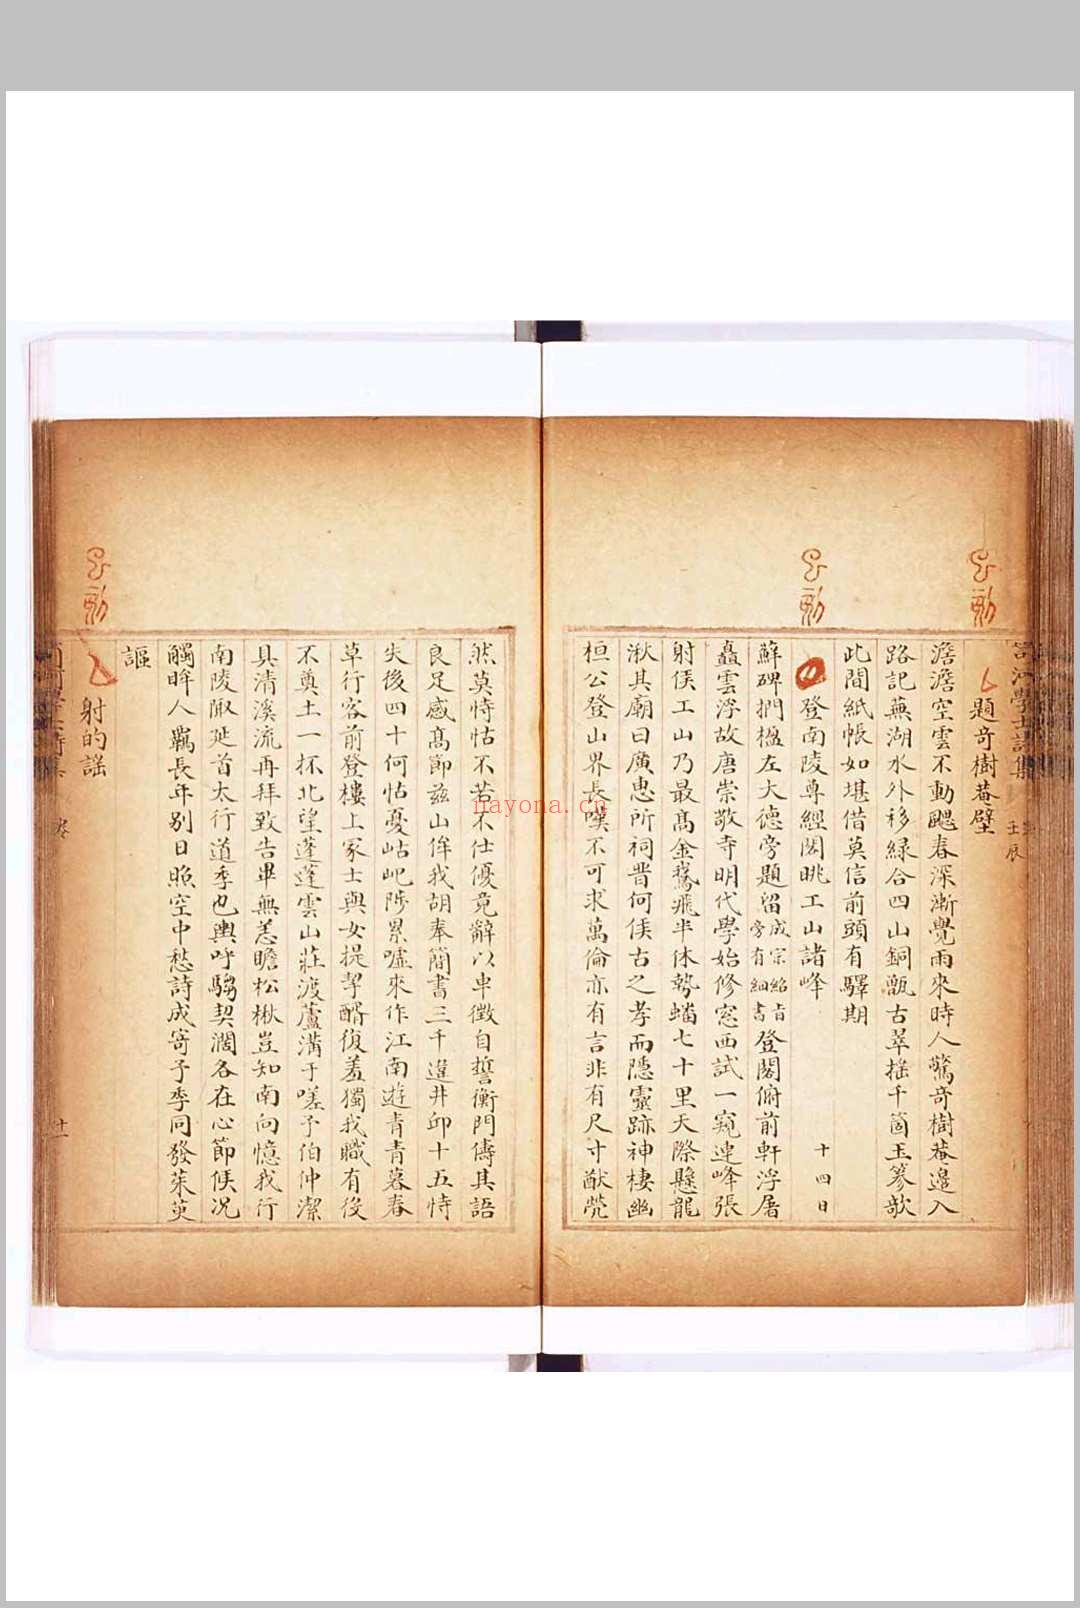 題奇樹菴壁
壬辰
澹澹空雲不動颸春深漸覺雨來時人驚奇樹菴邊入
路記蕪湖水外移綠合四山銅甑古翠搖千箇玉篸欹
此間紙帳如堪借莫信前頭有驛期
登南陵尊經閣眺工山諸峰 十四日
蘇碑捫楹左大德旁題留成宗紹旨旁有細書登閣俯前軒浮屠
矗雲浮故唐崇敬寺明代學始修窓西試一窺連峰張
射侯工山乃最高金鵞飛半休勢蟠七十里天際懸龍
湫其廟曰廣惠所祠晋何侯古之孝而隱靈跡神棲幽
桓公登山界長嘆不可求萬倫亦有言非有尺寸猷煢
然莫恃怙不若不仕優竟辭以車徵自誓衡門儔其語
良足感高節兹山侔我胡奉簡書三千遑井邱十五恃
失後四十何怙憂岵屺陟累嘘來作江南遊青青暮春
草行客前登樓上冢士與女提挈酳復羞獨我職有役
不奠土一抔北望蓬蓬雲山莊渡蘆溝于嗟予伯仲潔
具清溪流再拜致告畢無恙瞻松楸豈知南向憶我行
南陵陬延首太行道季也輿呼騶契濶各在心節候况
觸眸人羈長年别日照空中愁詩成寄予季同發茱萸
謳
射的謡
卷
十一
nayona.cn